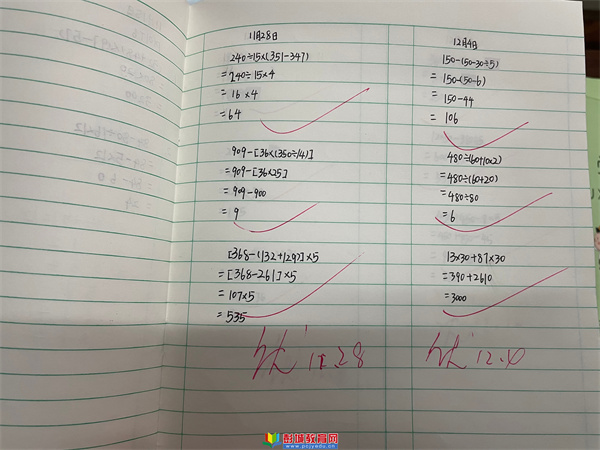 11月28日
240÷15×(351-347)
=240÷15×4
=16×4
=64
909-[36×(350÷14)]
=909-[36×25]
=909-900
=9
[368-(132+129)]×5
=[368-261]×5
=107×5
=535
优 11.28
12月4日
150-(50-30÷5)
=150-(50-6)
=150-44
=106
480÷(60+10×2)
=480÷(60+20)
=480÷80
=6
13×30+87×30
=390+2610
=3000
优 12.4
彭城教育网
www.pcjyedu.cn